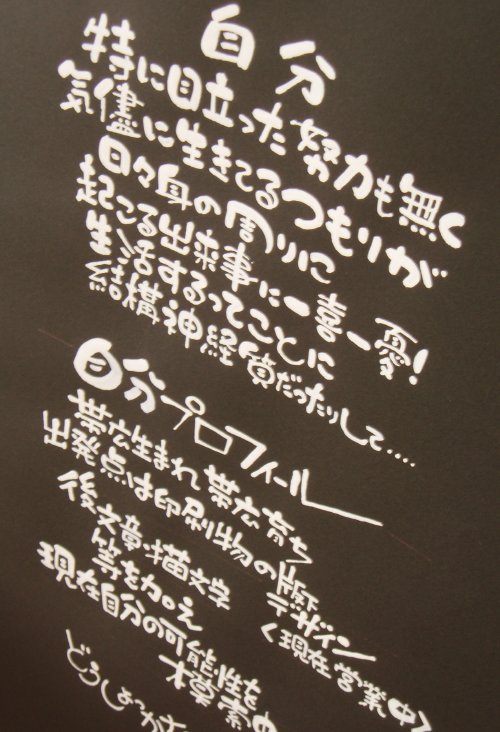 自分
特に目立った努力も無く
気儘に生きてるつもりが
日々身の周りに
起こる出来事に一喜一憂!
生活するってことに
結構神経質だったりして....
自分プロフィール
帯広生まれ 帯広育ち
出発点は印刷物の版下デザイン
後文章・描文字 <現在営業中>
等を加え
現在自分の可能性を